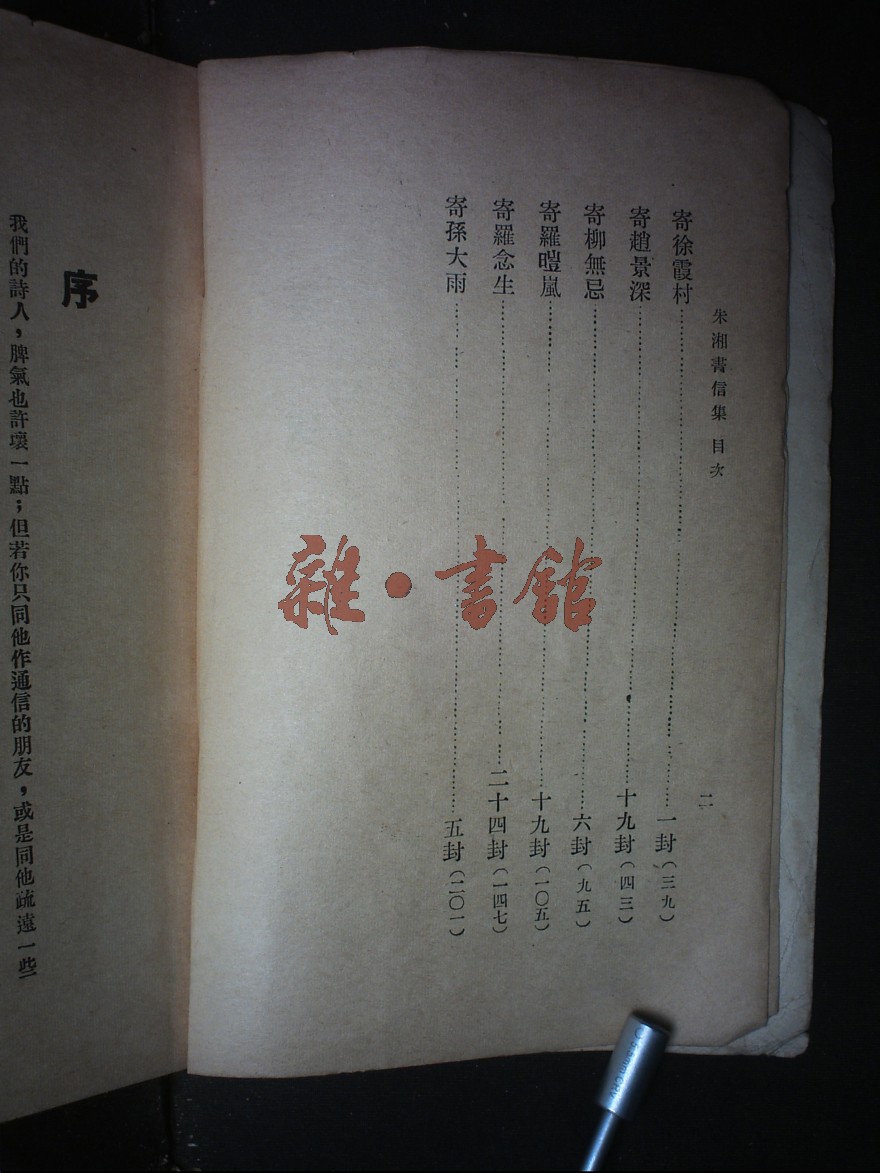 朱湘書信集 目次
二
寄徐霞村……………………一封(三九)
寄趙景深……………………十九封(四三)
寄柳無忌……………………六封(九五)
寄羅暟嵐……………………十九封(一〇五)
寄羅念生……………………二十四封(一四七)
寄孫大雨……………………五封(二〇一)
序
我們的詩人，脾氣也許壞一點；但若你只同他作通信的朋友，或是同他疏遠一些
雜·書館